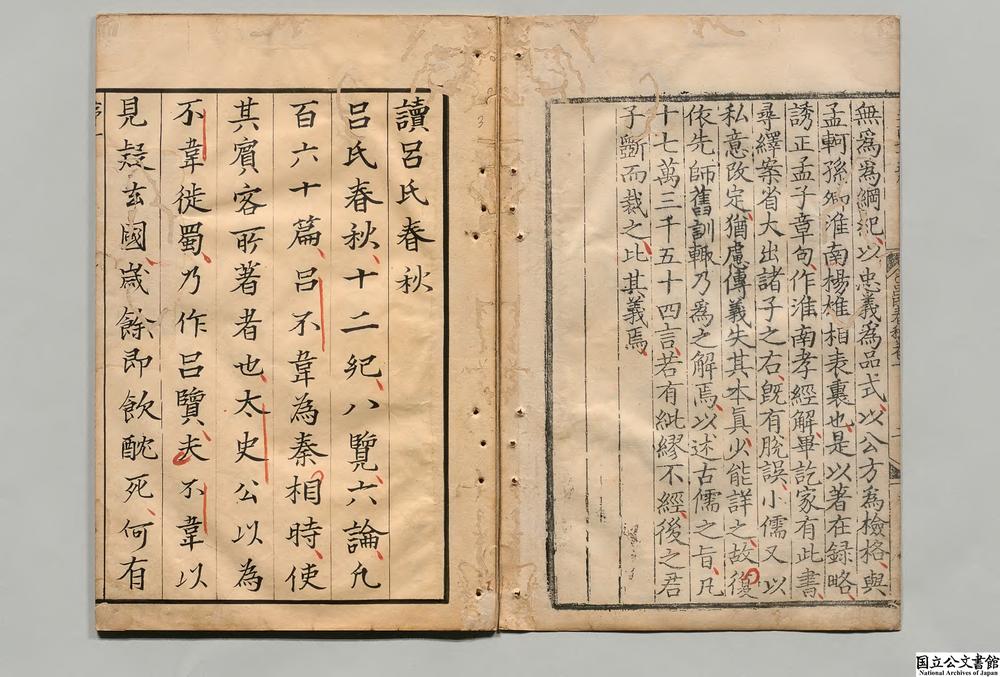 無爲爲綱紀以忠義爲品式以公方爲檢格與
孟軻孫卿淮南楊雄相表裏也是以著在録略
誘正孟子章句作淮南孝經解畢訖家有此書
尋繹案省大出諸子之右旣有脫誤小儒又以
私意改定猶慮傳義失其本眞少能詳之故復
依先師舊訓輒乃爲之解焉以述古儒之旨凡
十七萬三千五十四言若有紕繆不經後之君
子斷而裁之比其義焉
讀呂氏春秋
呂氏春秋十二紀八覽六論凡
百六十篇呂不韋為秦相時使
其賓客所著者也太史公以為
不韋徙蜀乃作呂覽夫不韋以
見疑去國歲餘即飲酖死何有
国立公文書館
National Archives of Japan